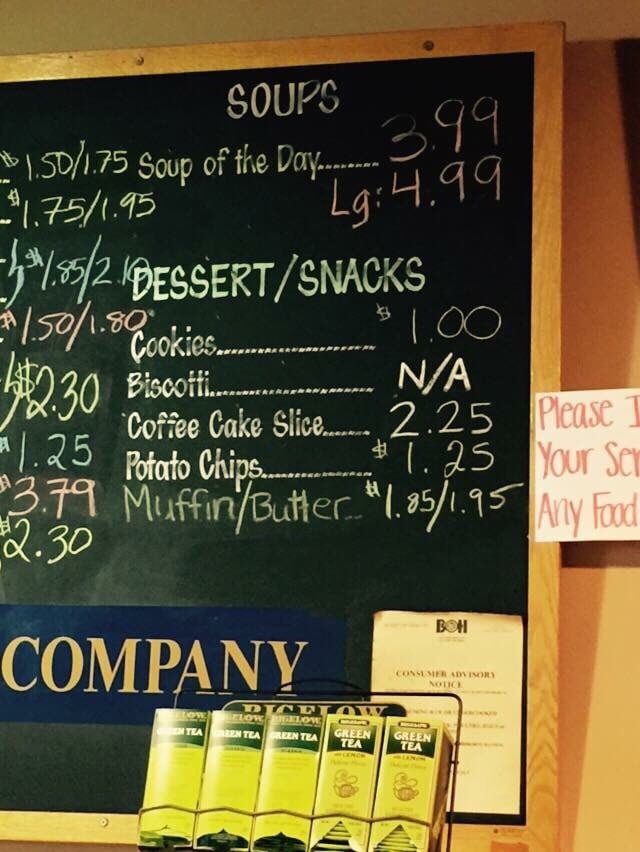 SOUPS
$1.50/1.75 Soup of the Day........ 3.99
$1.75/1.95 Lg: 4.99
$1.85/2.10 DESSERT/SNACKS
$1.50/1.80
Cookies................ $1.00
$2.30 Biscotti................ N/A
Coffee Cake Slice...... 2.25
$1.25 Potato Chips............ $1.25
$3.79 Muffin/Butter... $1.85/1.95
$2.30
Please
Your
Any Food
COMPANY
BOH
CONSUMER ADVISORY
NOTICE
BIGELOW
BIGELOW BIGELOW BIGELOW BIGELOW
GREEN TEA GREEN TEA GREEN TEA GREEN TEA GREEN TEA
with LEMON with LEMON